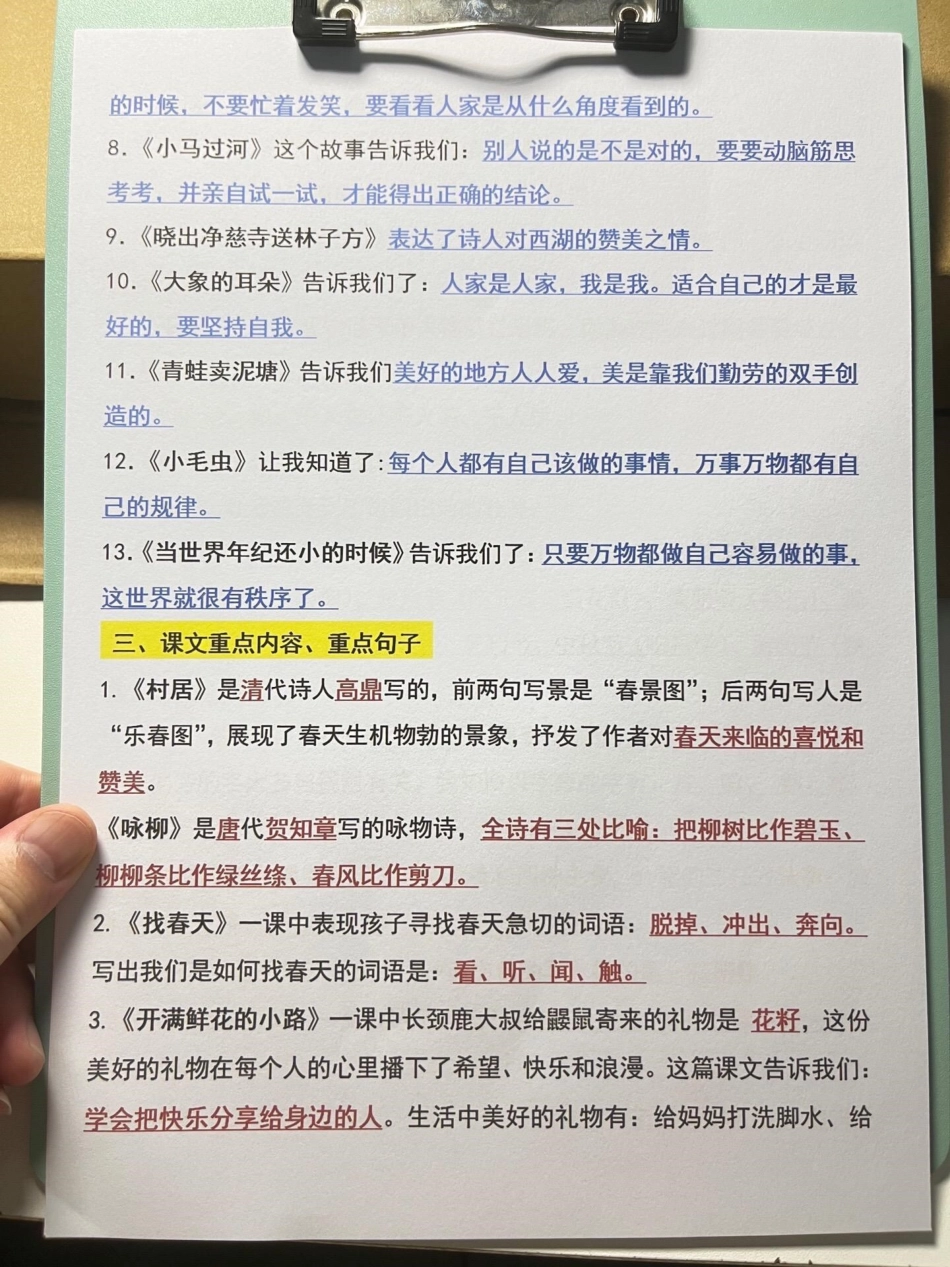 的时候，不要忙着发笑，要看看人家是从什么角度看到的。
8.《小马过河》这个故事告诉我们：别人说的是不是对的，要要动脑筋思
考考，并亲自试一试，才能得出正确的结论。
9.《晓出净慈寺送林子方》表达了诗人对西湖的赞美之情。
10.《大象的耳朵》告诉我们了：人家是人家，我是我。适合自己的才是最
好的，要坚持自我。
11.《青蛙卖泥塘》告诉我们美好的地方人人爱，美是靠我们勤劳的双手创
造的。
12.《小毛虫》让我知道了:每个人都有自己该做的事情，万事万物都有自
己的规律。
13.《当世界年纪还小的时候》告诉我们了：只要万物都做自己容易做的事，
这世界就很有秩序了。
三、课文重点内容、重点句子
1.《村居》是清代诗人高鼎写的，前两句写景是“春景图”；后两句写人是
“乐春图”，展现了春天生机物勃的景象，抒发了作者对春天来临的喜悦和
赞美。
《咏柳》是唐代贺知章写的咏物诗，全诗有三处比喻：把柳树比作碧玉、
柳柳条比作绿丝绦、春风比作剪刀。
2.《找春天》一课中表现孩子寻找春天急切的词语：脱掉、冲出、奔向。
写出我们是如何找春天的词语是：看、听、闻、触。
3.《开满鲜花的小路》一课中长颈鹿大叔给鼹鼠寄来的礼物是 花籽，这份
美好的礼物在每个人的心里播下了希望、快乐和浪漫。这篇课文告诉我们：
学会把快乐分享给身边的人。生活中美好的礼物有：给妈妈打洗脚水、给